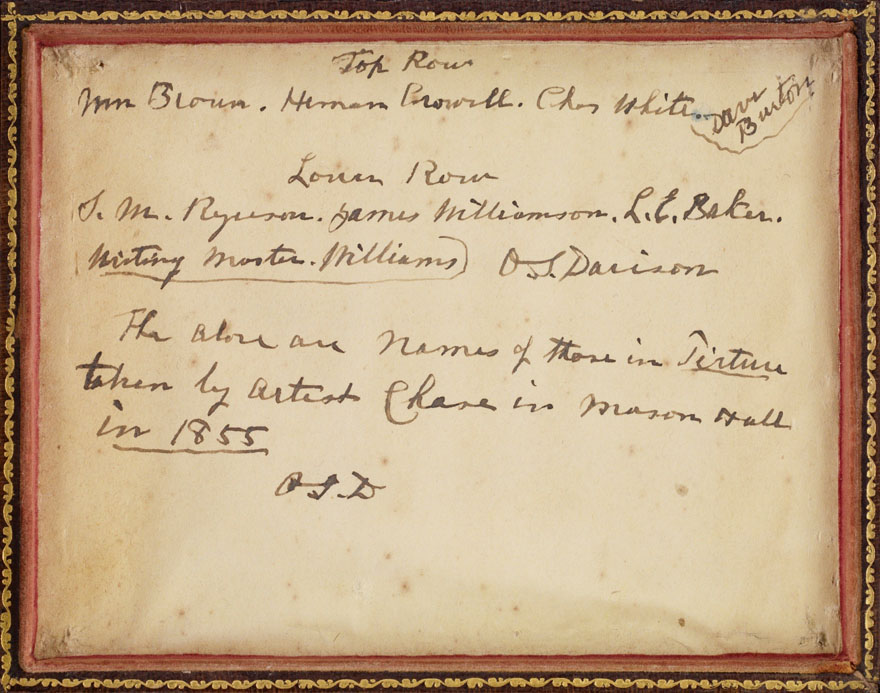 Top Row
Wm Brown. Heman Crowell. Chas White.
Dave
Burton
Lower Row
S. M. Ryerson. James Williamson. L. E. Baker.
Writing Master. Williams) O S. Davison
The above are Names of those in Picture
taken by artist Chase in Mason Hall
in 1855
O. S. D